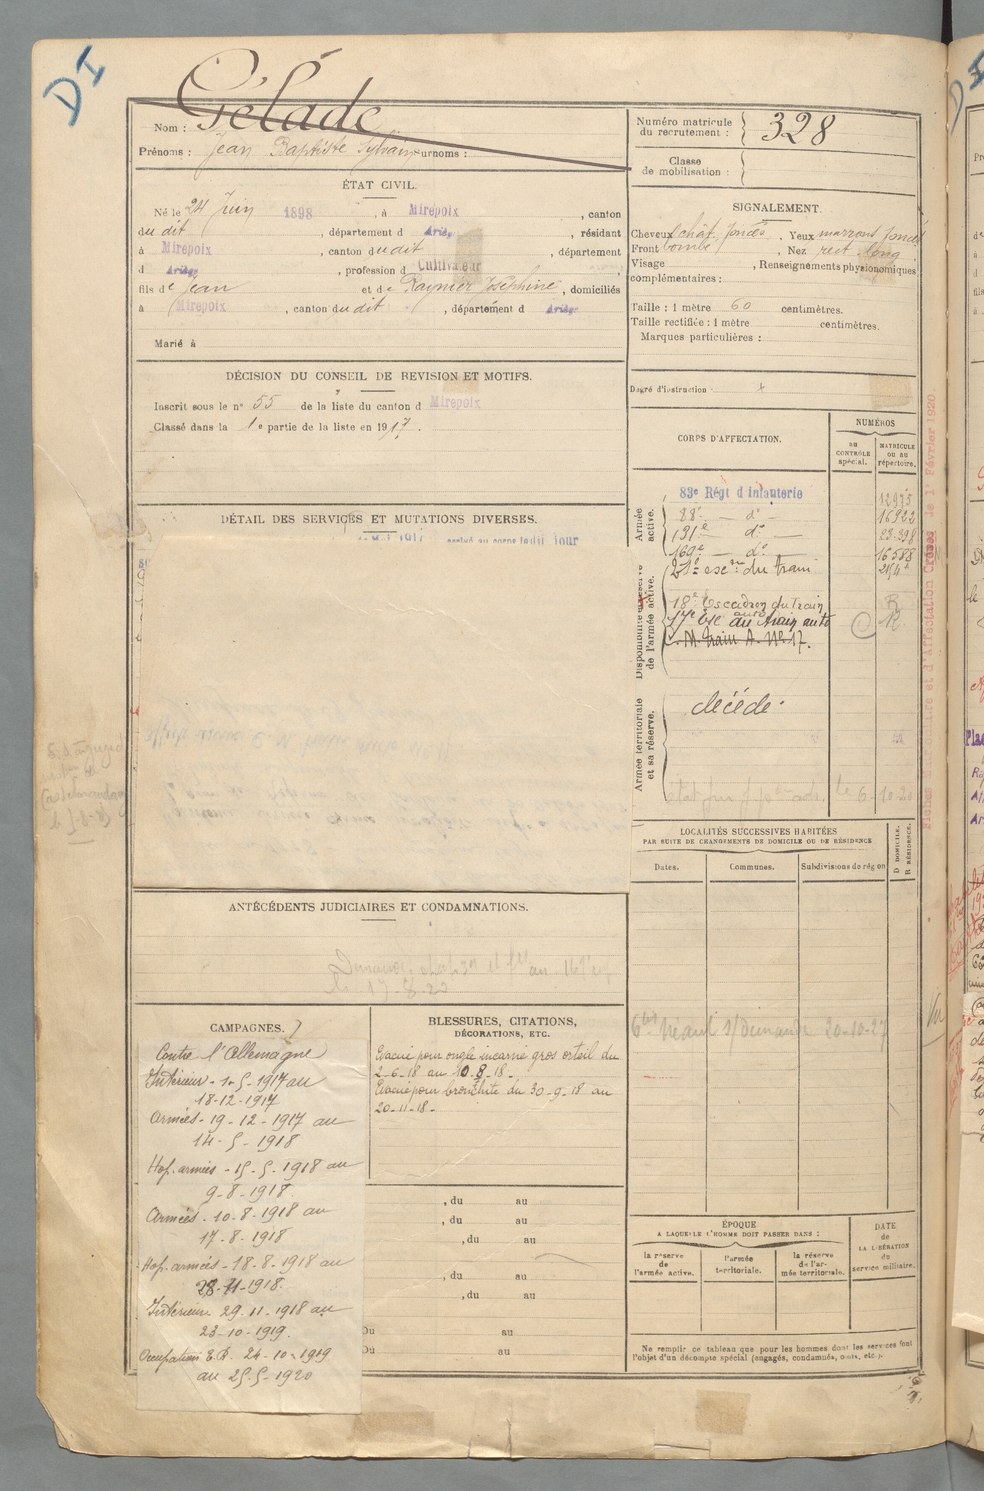 DI
Nom : Gélade
Prénoms : Jean Baptiste Sylvain Surnoms :
Numéro matricule du recrutement : 328
Classe de mobilisation :
ÉTAT CIVIL.
Né le 24 Juin 1898, à Mirepoix, canton
du dit, département d Ariège, résidant
à Mirepoix, canton du dit, département
d Ariège, profession d Cultivateur,
fils de Jean et de Raynier Joséphine, domiciliés
à Mirepoix, canton du dit, département d Ariège
Marié à
SIGNALEMENT.
Cheveux chât. foncés. Yeux marrons foncés
Front bombé, Nez rect. long
Visage, Renseignements physionomiques
complémentaires :
Taille : 1 mètre 60 centimètres.
Taille rectifiée : 1 mètre centimètres.
Marques particulières :
Degré d'instruction :
DÉCISION DU CONSEIL DE REVISION ET MOTIFS.
Inscrit sous le n° 55 de la liste du canton d Mirepoix
Classé dans la 1e partie de la liste en 1917.
CORPS D'AFFECTATION.
NUMÉROS
DU CONTRÔLE spécial.
MATRICULE OU AU répertoire.
Armée active.
83e Régt d'infanterie
88e — d°
191e — d°
169e — d° 16588
21e escon du train
Disponibilité et réserve de l'armée active.
18e Escadron du Train R
17e Esc auto au train auto R
M. train A. No 17.
Armée territoriale et sa réserve.
décédé.
le 6-10-20
Fiches et d'Affectation Créées le 1er Février 1920
DÉTAIL DES SERVICES ET MUTATIONS DIVERSES.
arrivé au corps ledit jour
ANTÉCÉDENTS JUDICIAIRES ET CONDAMNATIONS.
17-8-20
LOCALITÉS SUCCESSIVES HABITÉES
PAR SUITE DE CHANGEMENTS DE DOMICILE OU DE RÉSIDENCE
Dates.
Communes.
Subdivisions de région
D DOMICILE.
R RÉSIDENCE.
Néant s/Demande 20-10-27
CAMPAGNES.
Contre l'Allemagne
Intérieur - 1-5-1917 au
18-12-1917
Armées - 19-12-1917 au
14-5-1918
Hop. armées - 15-5-1918 au
9-8-1918.
Armées - 10-8-1918 au
17-8-1918
Hop. armées - 18-8-1918 au
28-11-1918.
Intérieur 29-11-1918 au
23-10-1919.
Occupation E.R. 24-10-1919
au 25-5-1920
BLESSURES, CITATIONS,
DÉCORATIONS, ETC.
Evacué pour ongle incarné gros orteil du
2-6-18 au 10-8-18.
Evacué pour bronchite du 30-9-18 au
20-11-18.
, du au
, du au
, du au
, du au
, du au
Du au
Du au
ÉPOQUE
A LAQUELLE L'HOMME DOIT PASSER DANS :
la réserve de l'armée active.
l'armée territoriale.
la réserve de l'armée territoriale.
DATE de LA LIBÉRATION du service militaire.
Ne remplir ce tableau que pour les hommes dont les services font
l'objet d'un décompte spécial (engagés, condamnés, omis, etc.).